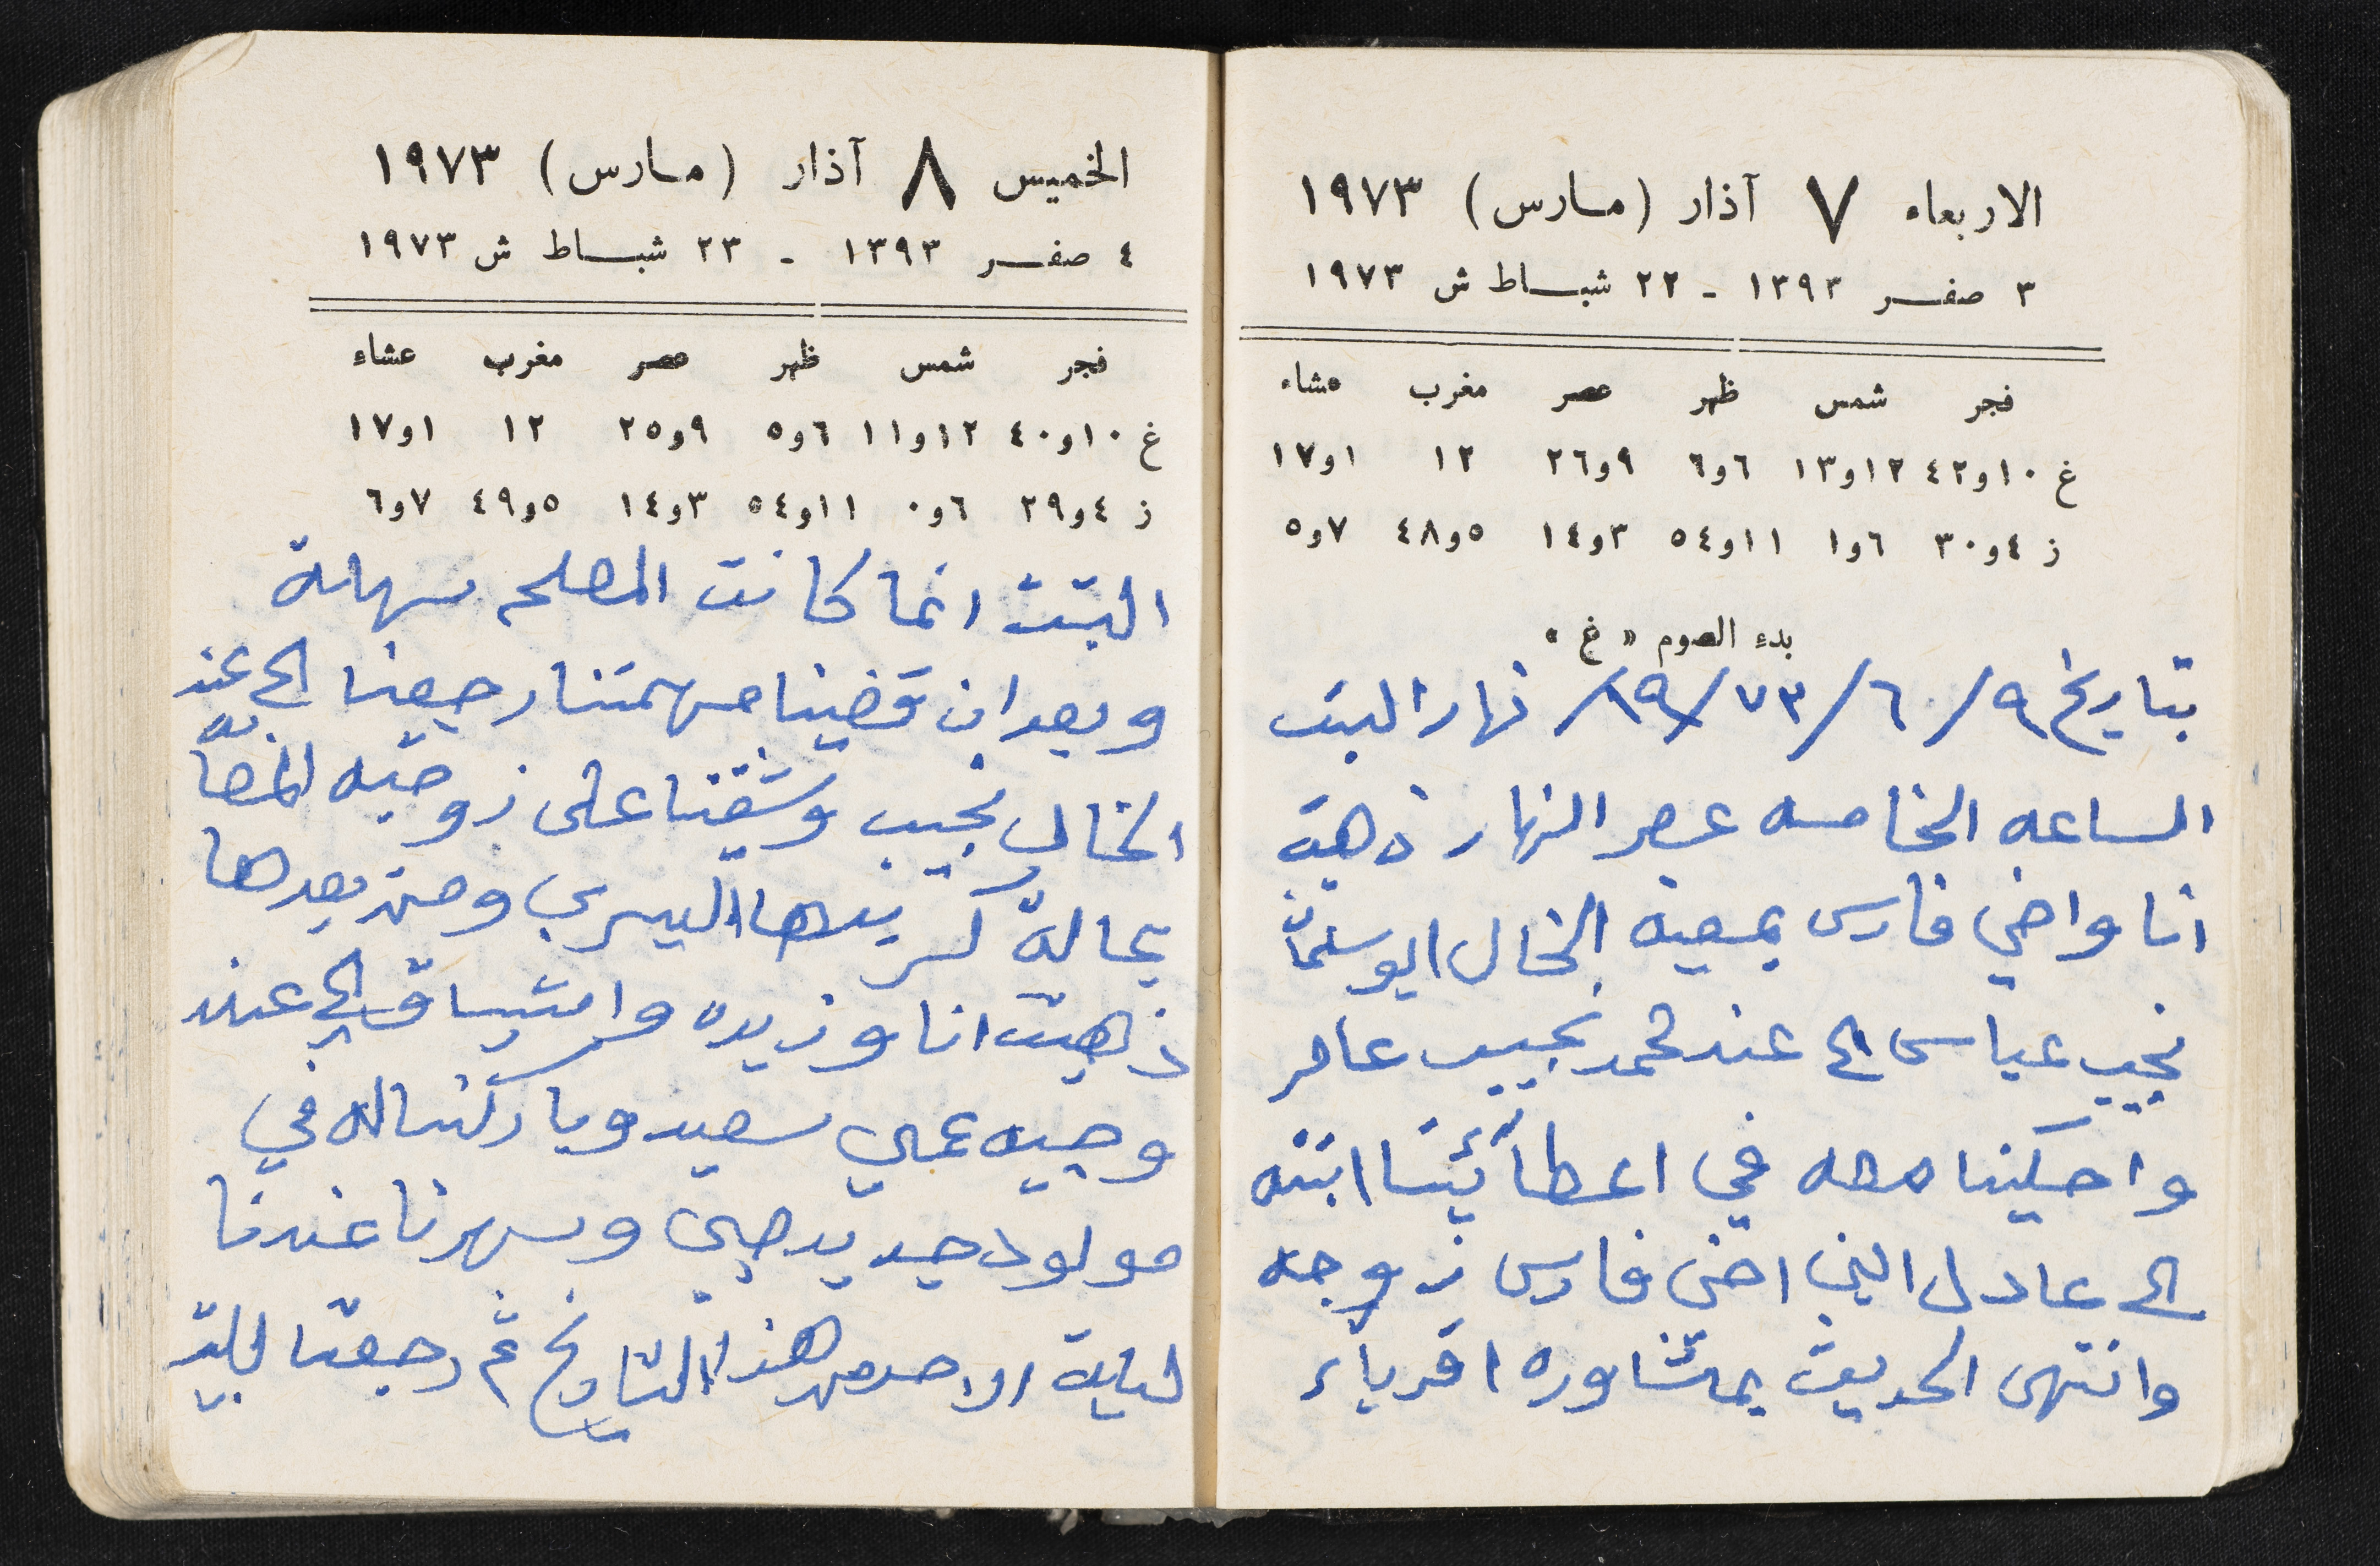 الاربعاء ٧ آذار (مارس) ١٩٧٣
٣ صفر ١٣٩٣ - ٢٢ شباط ش ١٩٧٣
فجر شمس ظهر عصر مغرب عشاء
غ ١٠و٤٢ ١٢و١٣ ٦و٦ ٩و٢٦ ١٢ ١و١٧
ز ٤و٣٠ ٦و١ ١١و٥٤ ٣و١٤ ٥و٤٨ ٧و٥
بدء الصوم « غ »
بتاريخ ٩/٦/٧٣/١٩/ نهار السبت
الساعه الخامسه عصر النهار ذهبت
انا واخي فارس بمعية الخال ابو سلمان
نجيب عباسي الى عند محمد نجيب عامر
واحكينا معه في اعطائنا ابنته
الى عادل ابن اخي فارس زوجه
وانتهى الحديث بمشاوره اقرباء
الخميس ٨ آذار (مارس) ١٩٧٣
٤ صفر ١٣٩٣ - ٢٣ شباط ش ١٩٧٣
فجر شمس ظهر عصر مغرب عشاء
غ ١٠و٤٠ ١٢و١١ ٦و٥ ٩و٢٥ ١٢ ١و١٧
ز ٤و٢٩ ٦و٠ ١١و٥٤ ٣و١٤ ٥و٤٩ ٧و٦
البنت انما كانت المصلحه سهلة
وبعد ان قضينا مهمتنا رجعنا الى عند
الخال نجيب وشقنا على زوجته المصابه
بحالة كسر يدها اليسرى ومن بعدها
ذهبت انا وزيده وامتساق الى عند
وجيه عمي سعيد وباركنا له في
مولود جديد صبي وسهرنا عندنا
ليلة الاحد من هذا التاريخ ثم رجعنا للبيت